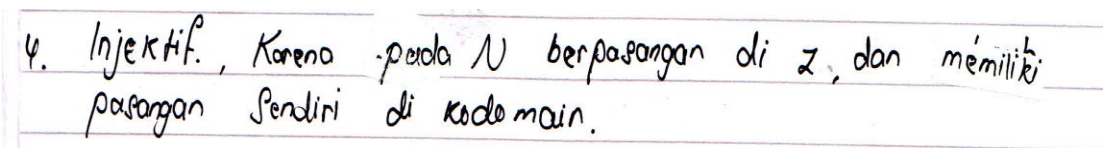 4. Injektif., Karena pada N berpasangan di Z, dan memiliki
pasangan sendiri di kodomain.